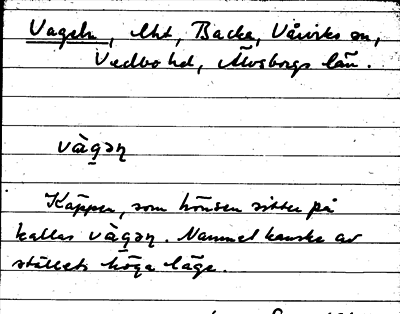 Vageln, lht, Backa, Vårviks sn,
Vedbo hd, Älvsborgs län.
vàgən
Käppen, som hönsen sitter på
kallas vàgən. Namnet kanske av
ställets höga läge.